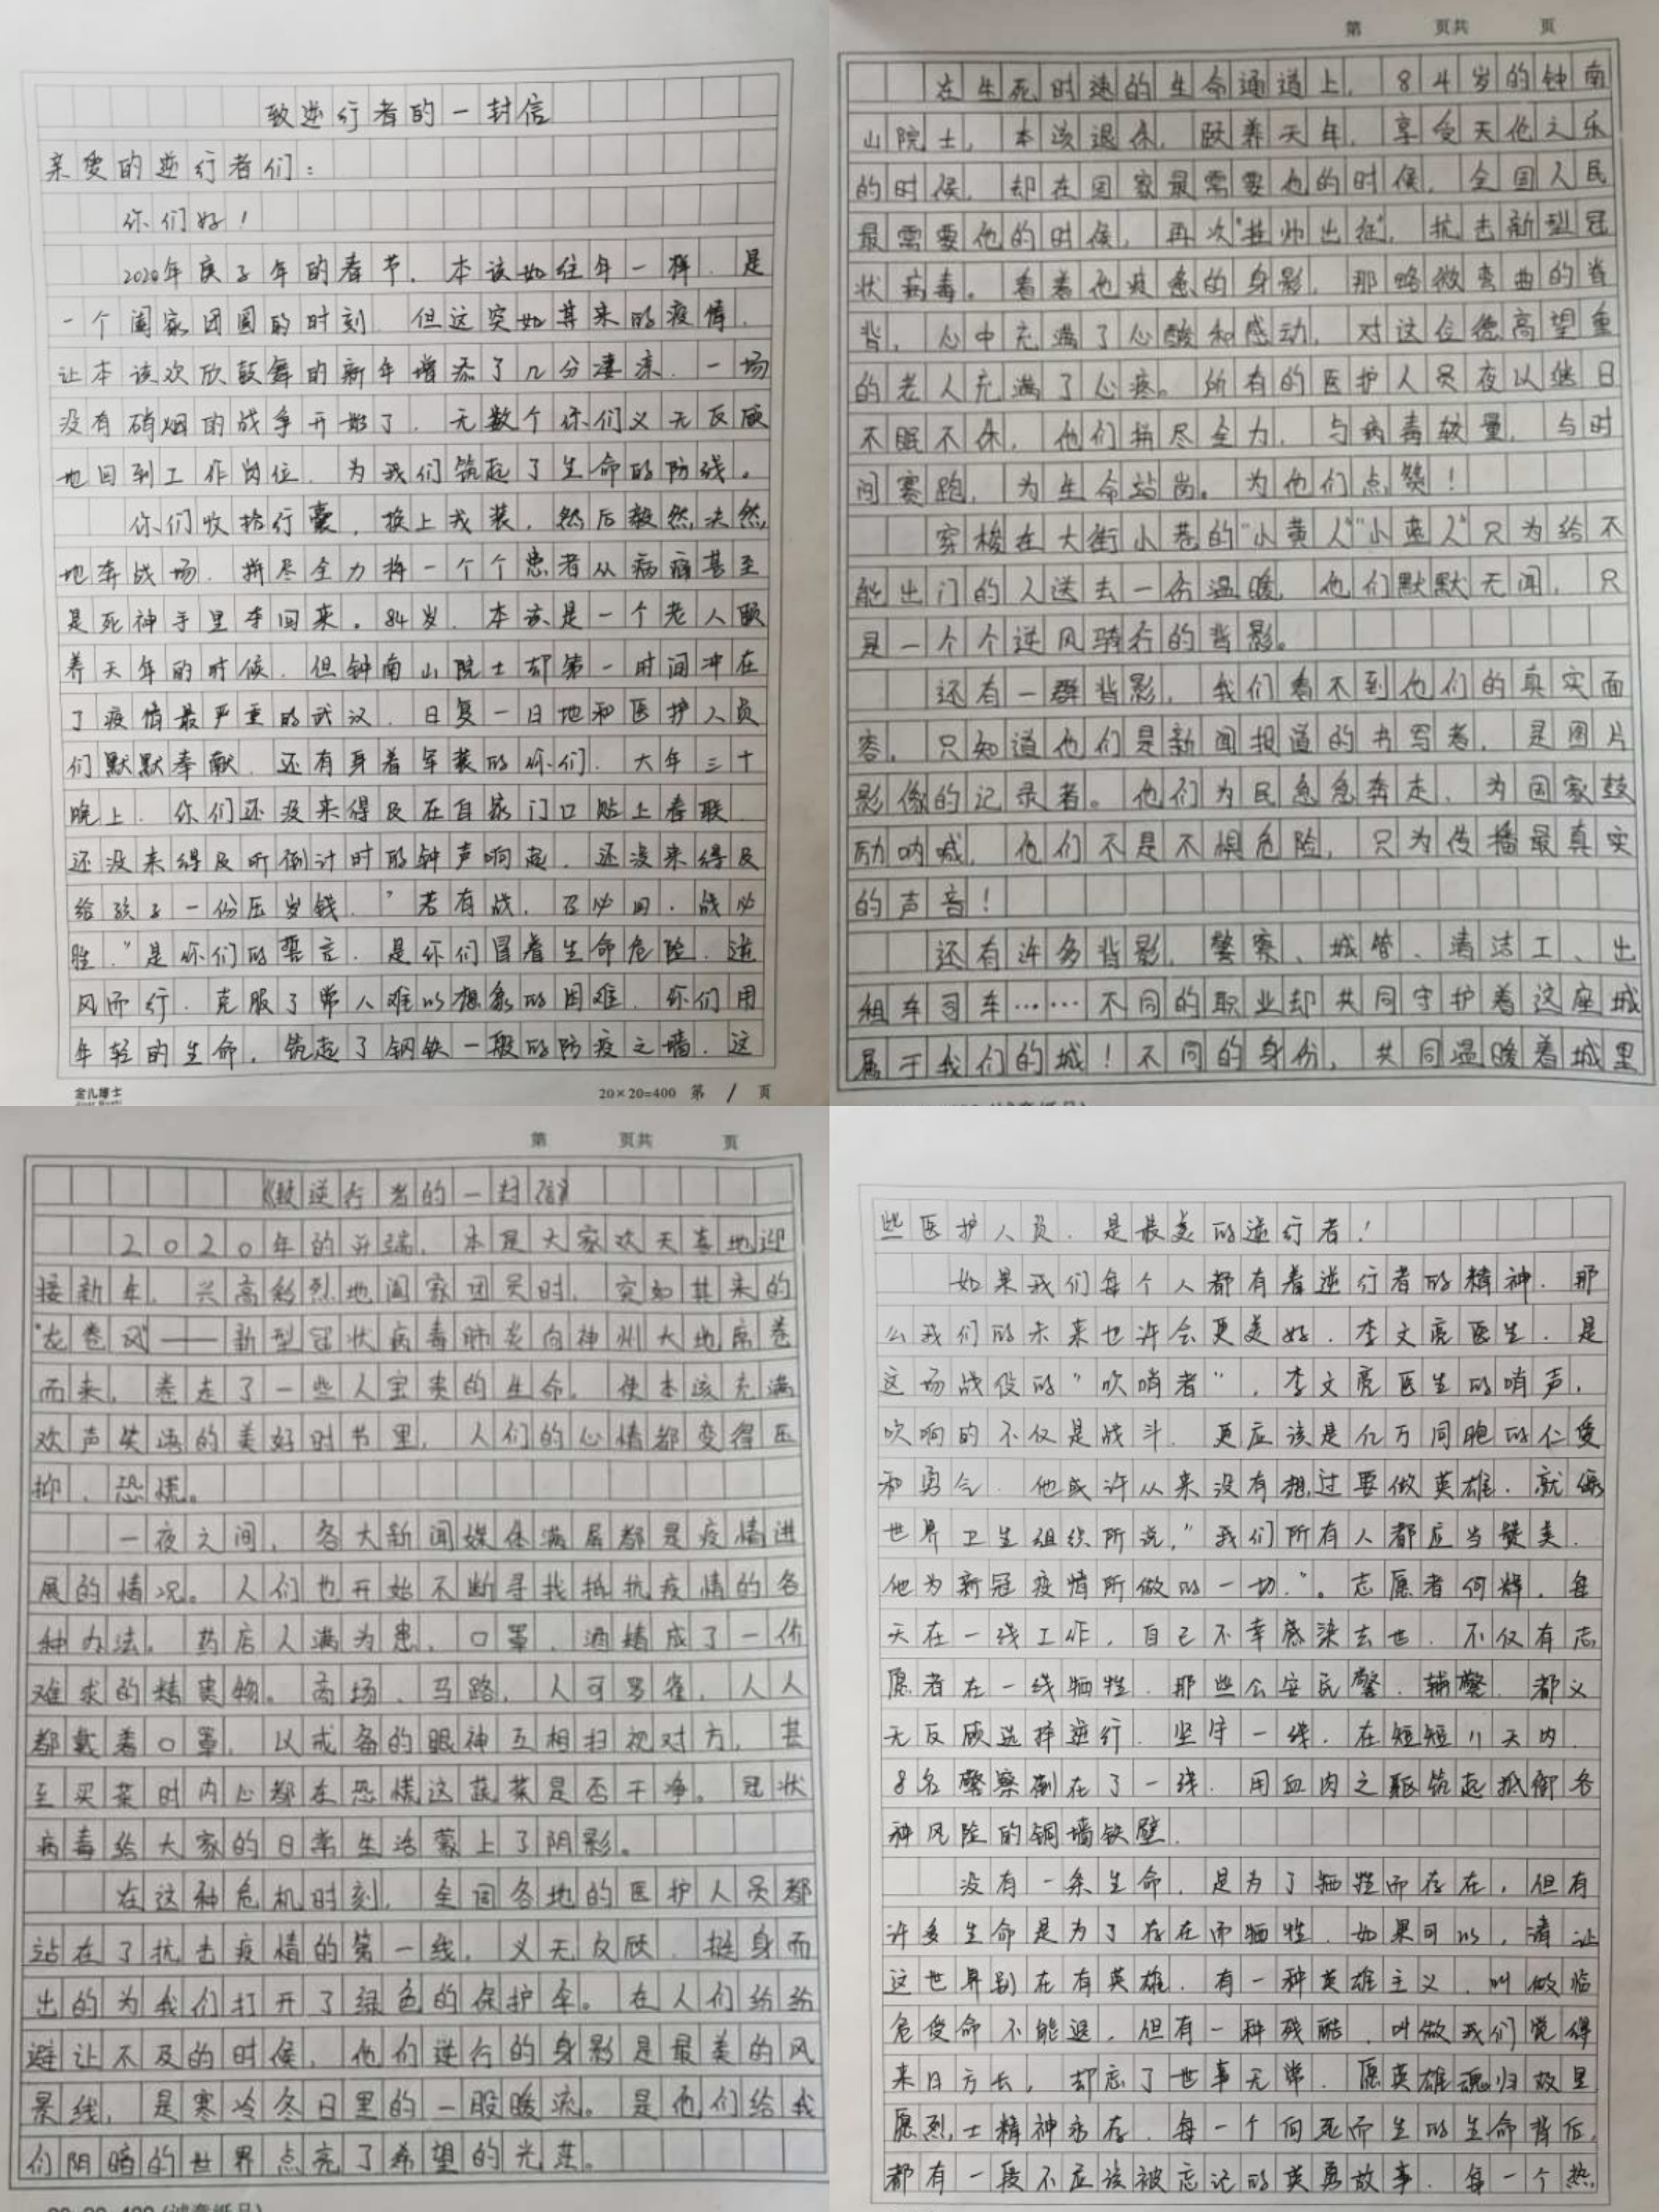 致逆行者的一封信
亲爱的逆行者们：
你们好！
2020年庚子年的春节，本该如往年一样，是
一个阖家团圆的时刻，但这突如其来的疫情，
让本该欢欣鼓舞的新年增添了几分凄凉，一场
没有硝烟的战争开始了，无数个你们义无反顾
地回到工作岗位，为我们筑起了生命的防线。
你们收拾行囊，换上戎装，然后毅然决然
地奔战场，拼尽全力将一个个患者从病痛甚至
是死神手里夺回来。84岁，本该是一个老人颐
养天年的时候，但钟南山院士却第一时间冲在
了疫情最严重的武汉，日复一日地和医护人员
们默默奉献，还有身着军装的你们，大年三十
晚上，你们还没来得及在自家门口贴上春联，
还没来得及听倒计时的钟声响起，还没来得及
给孩子一份压岁钱，"若有战，召必回，战必
胜。"是你们的誓言，是你们冒着生命危险，逆
风而行，克服了常人难以想象的困难，你们用
年轻的生命，筑起了钢铁一般的防疫之墙，这
金儿博士
20×20=400 第 1 页
第 页共 页
在生死时速的生命通道上，84岁的钟南
山院士，本该退休，颐养天年，享受天伦之乐
的时候，却在国家最需要他的时候，全国人民
最需要他的时候，再次"挂帅出征"，抗击新型冠
状病毒。看着他疲惫的身影，那略微弯曲的脊
背，心中充满了心酸和感动，对这位德高望重
的老人充满了心疼。所有的医护人员夜以继日
不眠不休，他们拼尽全力，与病毒较量，与时
间赛跑，为生命站岗。为他们点赞！
穿梭在大街小巷的"小黄人""小蓝人"只为给不
能出门的人送去一份温暖，他们默默无闻，只
是一个个逆风骑行的背影。
还有一群背影，我们看不到他们的真实面
容，只知道他们是新闻报道的书写者，是图片
影像的记录者。他们为民急急奔走，为国家鼓
励呐喊，他们不是不惧危险，只为传播最真实
的声音！
还有许多背影，警察、城管、清洁工、出
租车司车……不同的职业却共同守护着这座城
属于我们的城！不同的身份，共同温暖着城里
第 页共 页
《致逆行者的一封信》
2020年的开端，本是大家欢天喜地迎
接新年，兴高彩烈地阖家团员时，突如其来的
"龙卷风"——新型冠状病毒肺炎向神州大地席卷
而来，卷走了一些人宝贵的生命，使本该充满
欢声笑语的美好时节里，人们的心情都变得压
抑、恐慌。
一夜之间，各大新闻媒体满屏都是疫情进
展的情况。人们也开始不断寻找抵抗疫情的各
种办法。药店人满为患，口罩、酒精成了一价
难求的精贵物。商场、马路，人可罗雀，人人
都戴着口罩，以戒备的眼神互相扫视对方，甚
至买菜时内心都在恐慌这蔬菜是否干净。冠状
病毒给大家的日常生活蒙上了阴影。
在这种危机时刻，全国各地的医护人员都
站在了抗击疫情的第一线，义无反顾、挺身而
出的为我们打开了绿色的保护伞。在人们纷纷
避让不及的时候，他们逆行的身影是最美的风
景线，是寒冷冬日里的一股暖流。是他们给我
们阴暗的世界点亮了希望的光芒。
些医护人员，是最美的逆行者！
如果我们每个人都有着逆行者的精神，那
么我们的未来也许会更美好，李文亮医生，是
这场战役的"吹哨者"，李文亮医生的哨声，
吹响的不仅是战斗，更应该是亿万同胞的仁爱
和勇气，他或许从来没有想过要做英雄，就像
世界卫生组织所说，"我们所有人都应当赞美，
他为新冠疫情所做的一切。"。志愿者何辉，每
天在一线工作，自己不幸感染去世，不仅有志
愿者在一线牺牲，那些公安民警、辅警，都义
无反顾选择逆行，坚守一线，在短短11天内，
8名警察倒在了一线，用血肉之躯筑起抵御各
种风险的铜墙铁壁。
没有一条生命，是为了牺牲而存在，但有
许多生命是为了存在而牺牲，如果可以，请让
这世界别在有英雄，有一种英雄主义，叫做临
危受命不能退，但有一种残酷，叫做我们觉得
来日方长，却忘了世事无常，愿英雄魂归故里
愿烈士精神永存，每一个向死而生的生命背后，
都有一段不应该被忘记的英勇故事，每一个热